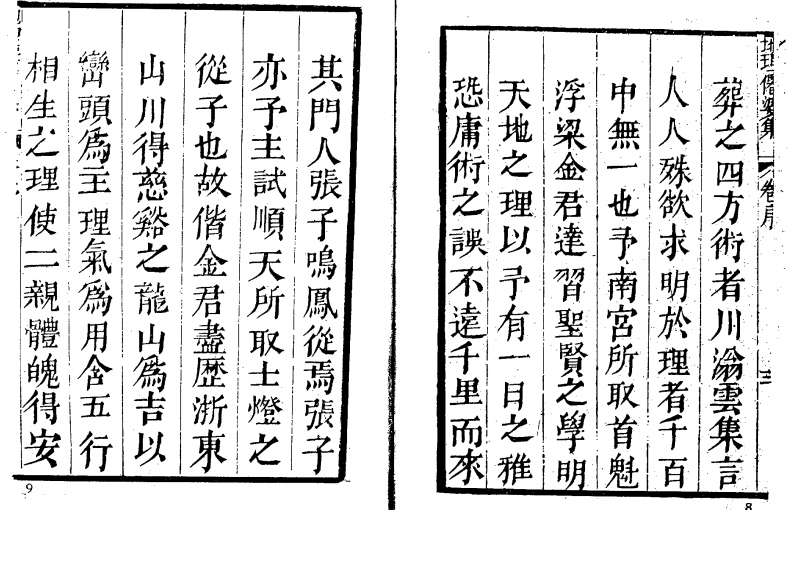 葬之四方術者川瀚雲集言
人人殊欲求明於理者千百
中無一也予南宮所取首魁
浮梁金君達習聖賢之學明
天地之理以予有一日之雅
恐庸術之誤不遠千里而來
8
其門人張子鳴鳳從焉張子
亦予主試順天所取士燈之
從子也故偕金君盡歷浙東
山川得慈谿之龍山為吉以
巒頭為主理氣為用舍五行
相生之理使二親體魄得安
9